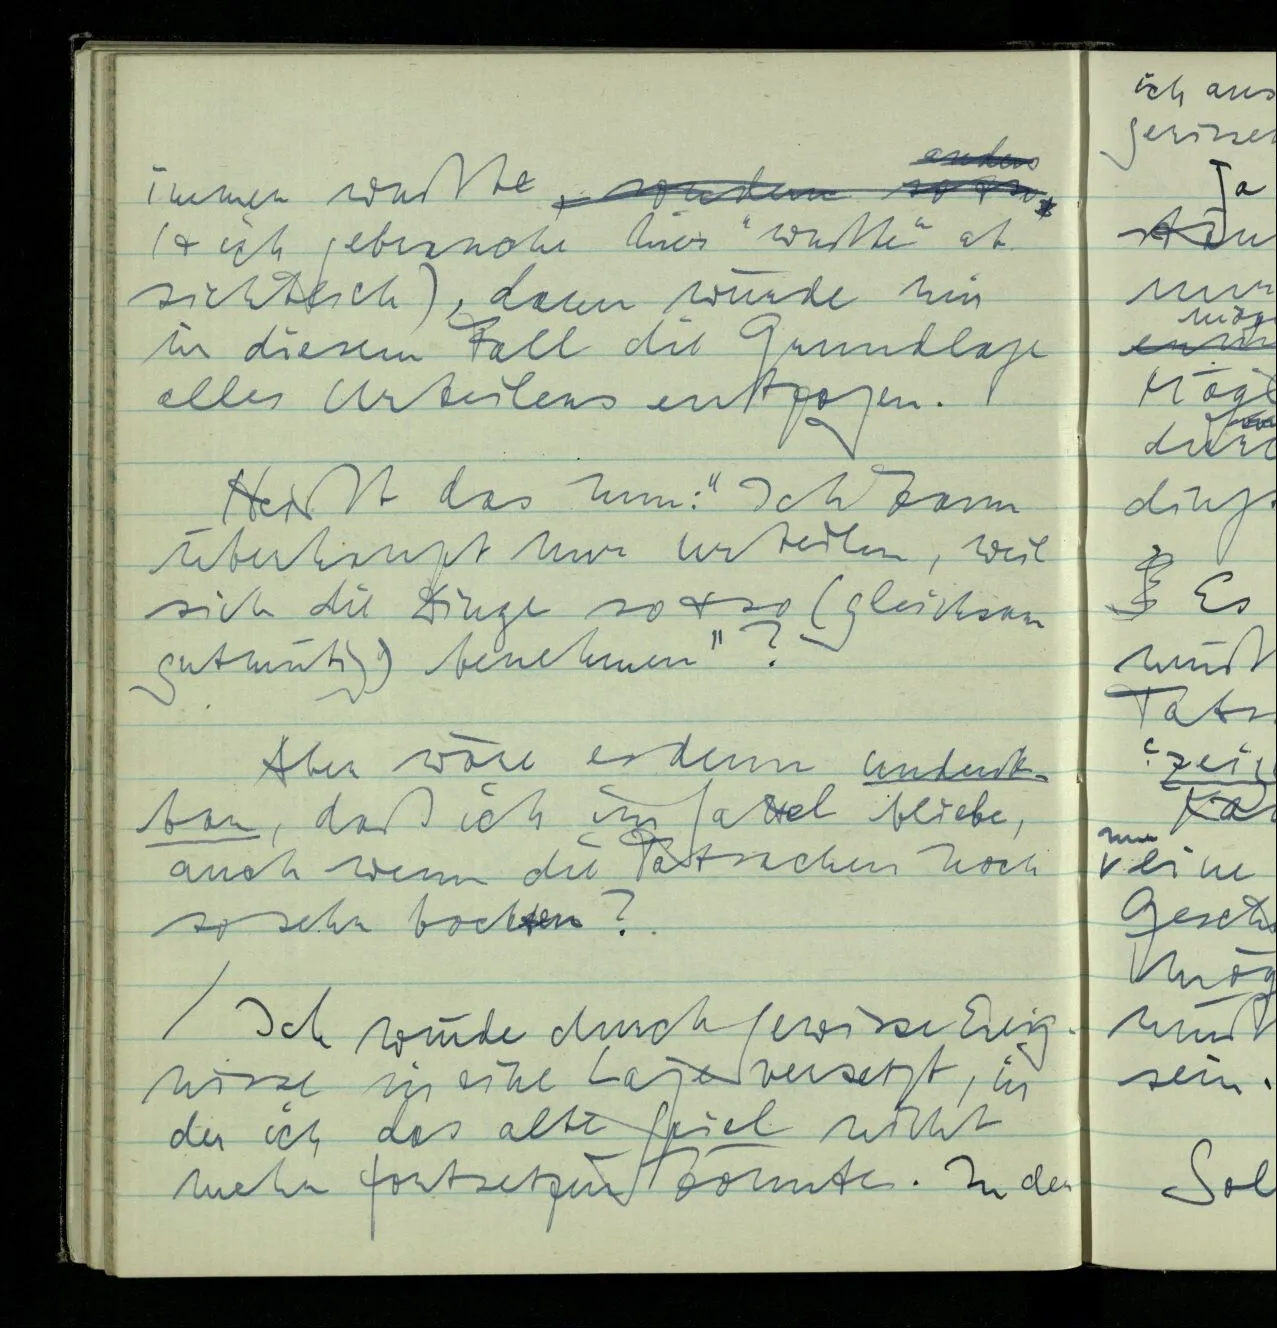 immer wußte, sondern so & so anders
(& ich gebrauche hier "wußte" ab-
sichtlich), dann würde mir
in diesem Fall die Grundlage
alles Urteilens entzogen.
Heißt das nun: "Ich kann
überhaupt nur urteilen, weil
sich die Dinge so & so (gleichsam
gutmütig) benehmen"?
Aber wäre es denn undenk-
bar, daß ich im Sattel bliebe,
auch wenn die Tatsachen noch
so sehr bockten?
/ Ich würde durch gewisse Ereig-
nisse in eine Lage versetzt, in
der ich das alte Spiel nicht
mehr fortsetzen könnte. In der
ich aus
gerisse
Ja
nur
Mögl
dings
Es
muß
Tats
zeig
nur
eine
Gesch
mög
muß
sein.
Sol